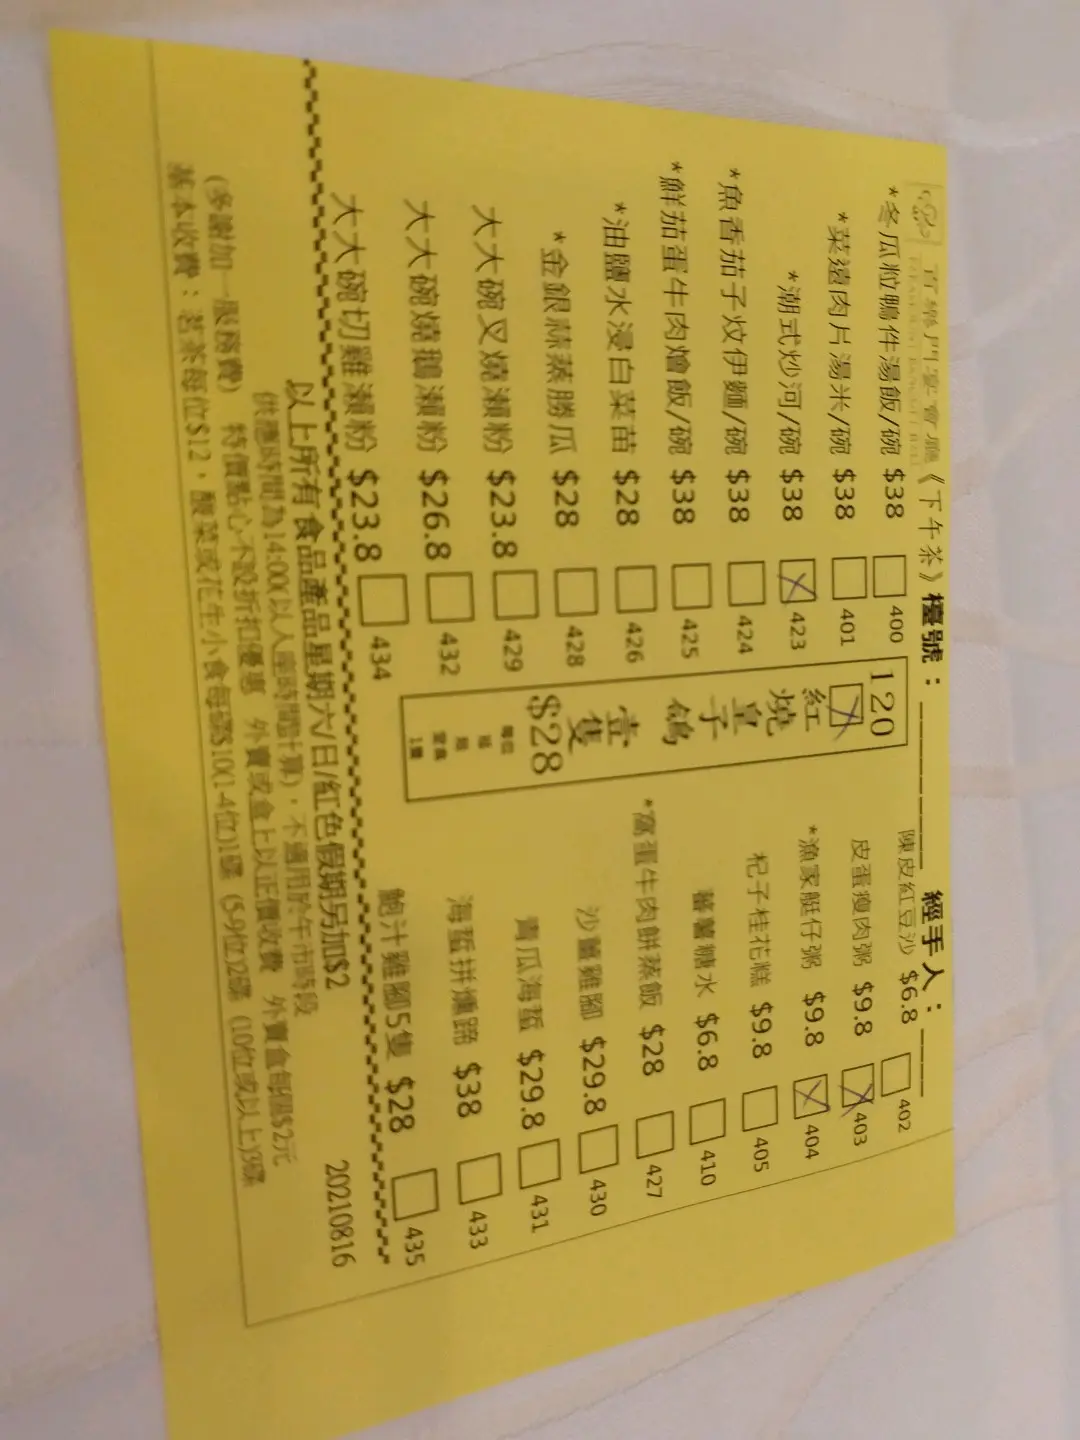 百樂門宴會廳《下午茶》檯號：________ 經手人：____
*冬瓜粒鴨件湯飯/碗 $38 400
*菜遠肉片湯米/碗 $38 401
*潮式炒河/碗 $38 423
*魚香茄子炆伊麵/碗 $38 424
*鮮茄蛋牛肉燴飯/碗 $38 425
*油鹽水浸白菜苗 $28 426
*金銀蒜蒸勝瓜 $28 428
大大碗叉燒瀨粉 $23.8 429
大大碗燒鵝瀨粉 $26.8 432
大大碗切雞瀨粉 $23.8 434
120
紅燒皇子鴿壹隻
$28
陳皮紅豆沙 $6.8 402
皮蛋瘦肉粥 $9.8 403
*漁家艇仔粥 $9.8 404
杞子桂花糕 $9.8 405
蕃薯糖水 $6.8 410
*窩蛋牛肉餅蒸飯 $28 427
沙薑雞腳 $29.8 430
青瓜海蜇 $29.8 431
海蜇拼燻蹄 $38 433
鮑汁雞腳5隻 $28 435
以上所有食品產品星期六/日/紅色假期另加$2
20210816
供應時間為14:00(以入座時間計算)，不適用於午市時段
(多謝加一服務費) 特價點心不設折扣優惠 外賣或盒上以正價收費 外賣盒每個$2元
基本收費：茗茶每位$12，酸菜或花生小食每碟$10(1-4位)1碟 (5-9位)2碟 (10位或以上)3碟